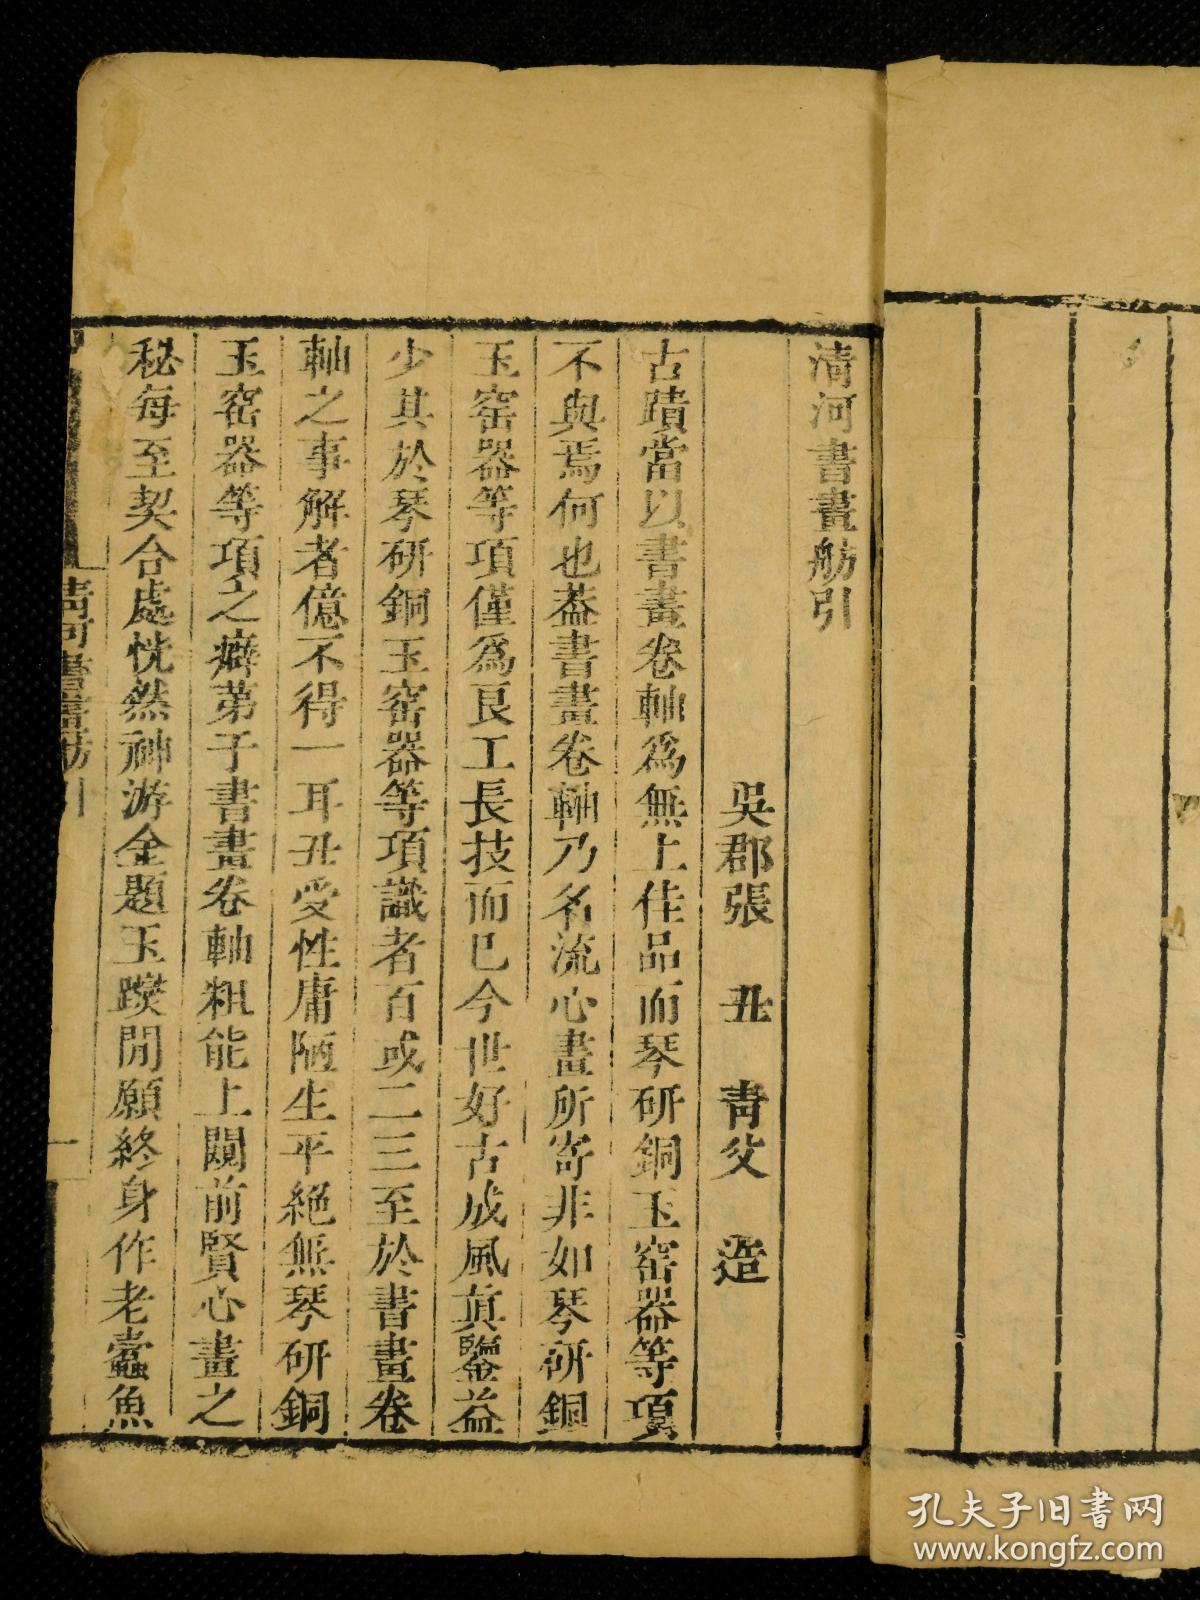 清河書畫舫引
吳郡張 丑 靑父 造
古蹟當以書畫卷軸爲無上佳品而琴硏銅玉窑器等項
不與焉何也葢書畫卷軸乃名流心畫所寄非如琴硏銅
玉窑器等項僅爲良工長技而已今世好古成風眞鑒益
少其於琴硏銅玉窑器等項識者百或二三至於書畫卷
軸之事解者億不得一耳丑受性庸陋生平絕無琴硏銅
玉窑器等項之癖苐于書畫卷軸粗能上闚前賢心畫之
秘每至契合處恍然神游金題玉躞閒願終身作老蠧魚
清河書畫舫引
一
孔夫子旧书网
www.kongfz.com